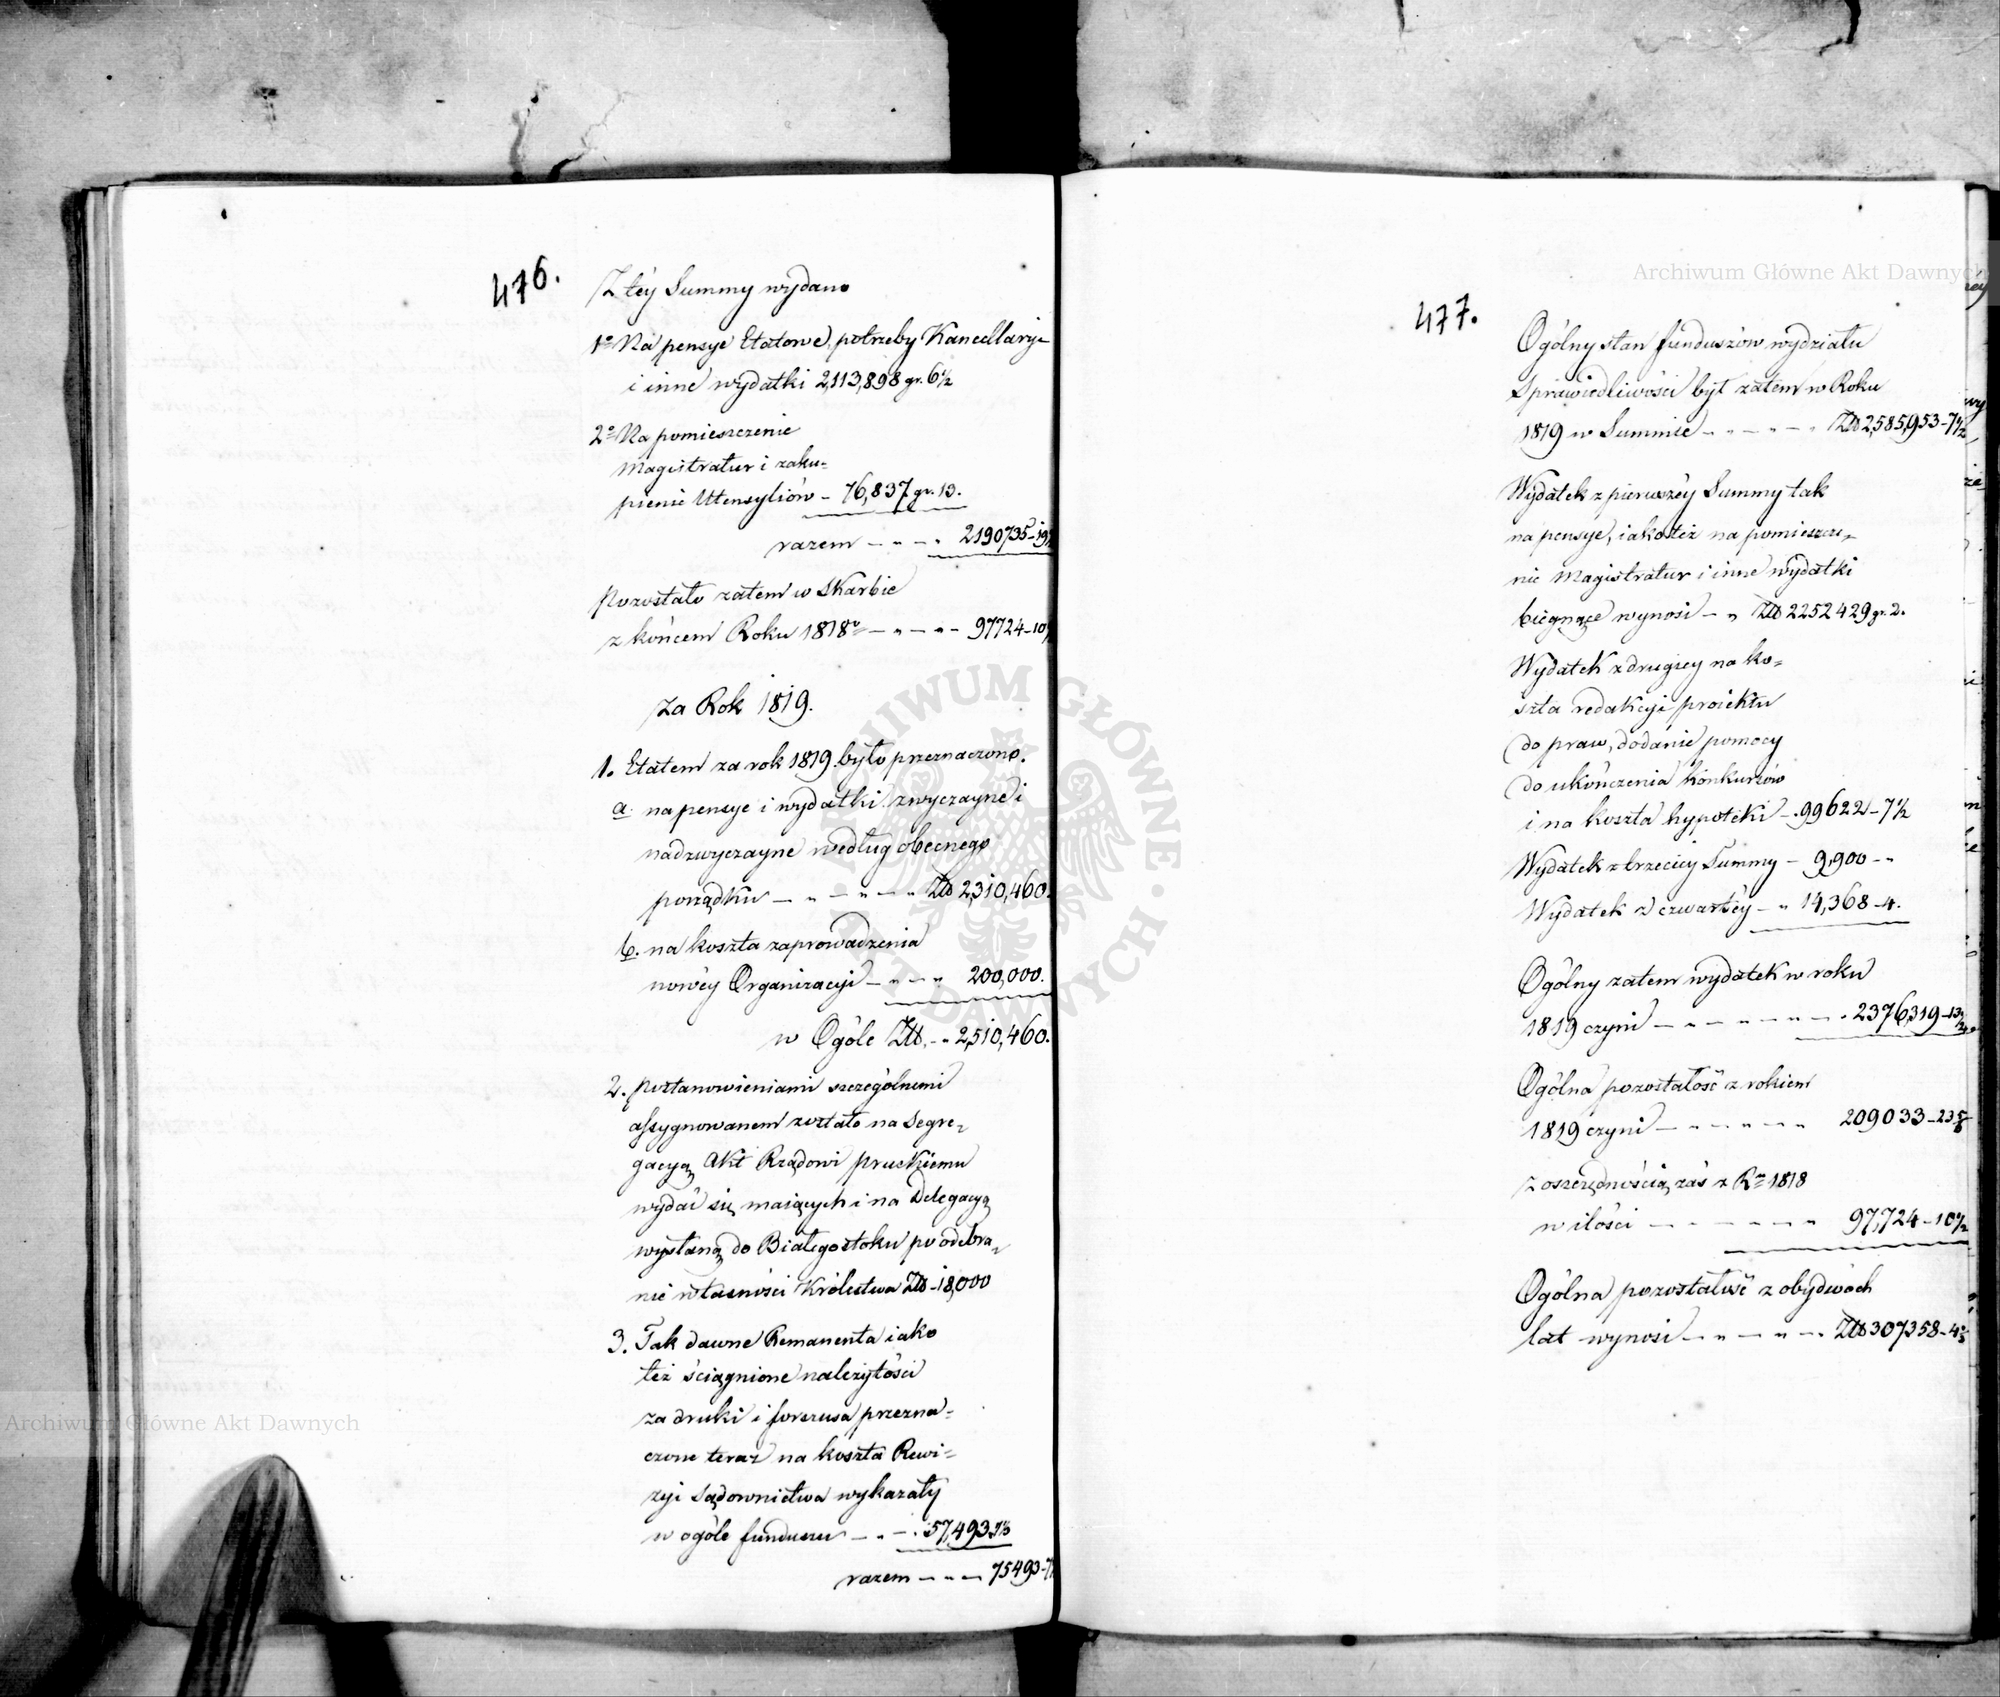 476.
Z téy Summy wydano
1º Na pensye Etatowe, potrzeby Kancellaryi
i inne wydatki 2,113,898 gr. 6½
2º Na pomieszczenie
Magistratur i zaku=
pienie Utensyliów – 76,837 gr. 13.
razem – „ – „ 2190735–19½
pozostało zatem w Skarbie
z końcem Roku 1818º – „ – „ – 97724–10½
Za Rok 1819.
1. Etatem za rok 1819. było przeznaczono.
a. na pensye i wydatki zwyczayne i
nadzwyczayne według obecnego
porządku – „ – „ – „ Złt 2,310,460.
b. na koszta zaprowadzenia
nowéy Organizacyi – „ – „ 200,000.
w Ogóle Złt. – „ 2,510,460.
2. postanowieniami szczególnemi
assygnowanem zostało na Segre=
gacyą Akt Rządowi pruskiemu
wydać się maiących i na Delegacyą
wysłaną do Białegostoku po odebra=
nie własności Królestwa Złt – 18,000
3. Tak dawne Remanenta iako
też ściągnione należytości
za druki i forszusa przezna=
czone teraz na koszta Rewi=
zyi Sądownictwa wykazały
w ogóle funduszu – „ – . 57,493.7½
razem – „ – 75493–7½
477.
Ogólny stan funduszów wydziału
Sprawiedliwości był zatem w Roku
1819 w Summie – „ – „ – „ Złt 2,585,953–7½
Wydatek z pierwszéy Summy tak
na pensye, iakoteż na pomieszcze=
nie Magistratur i inne wydatki
biegnące wynosi – „ Złt 2252429 gr. 2.
Wydatek z drugiey na ko=
szta redakcyi proiektu
do praw, dodanie pomocy
do ukończenia konkursów
i na koszta hypoteki – . 99622–7½
Wydatek z trzeciey Summy – 9,900 – „
Wydatek z czwartéy – „ 14,368–4.
Ogólny zatem wydatek w roku
1819 czyni – „ – „ – „ – . 2376,319–13½
Ogólna pozostałość z rokiem
1819 czyni – „ – „ – „ 209033–23
z oszczędnością zaś z Rº 1818
w ilości – „ – „ – „ 97,724–10½
Ogólna pozostałość z obydwóch
lat wynosi – „ – „ – . Złt 307358–4
Archiwum Główne Akt Dawnych
Archiwum Główne Akt Dawnych
ARCHIWUM GŁÓWNE AKT DAWNYCH